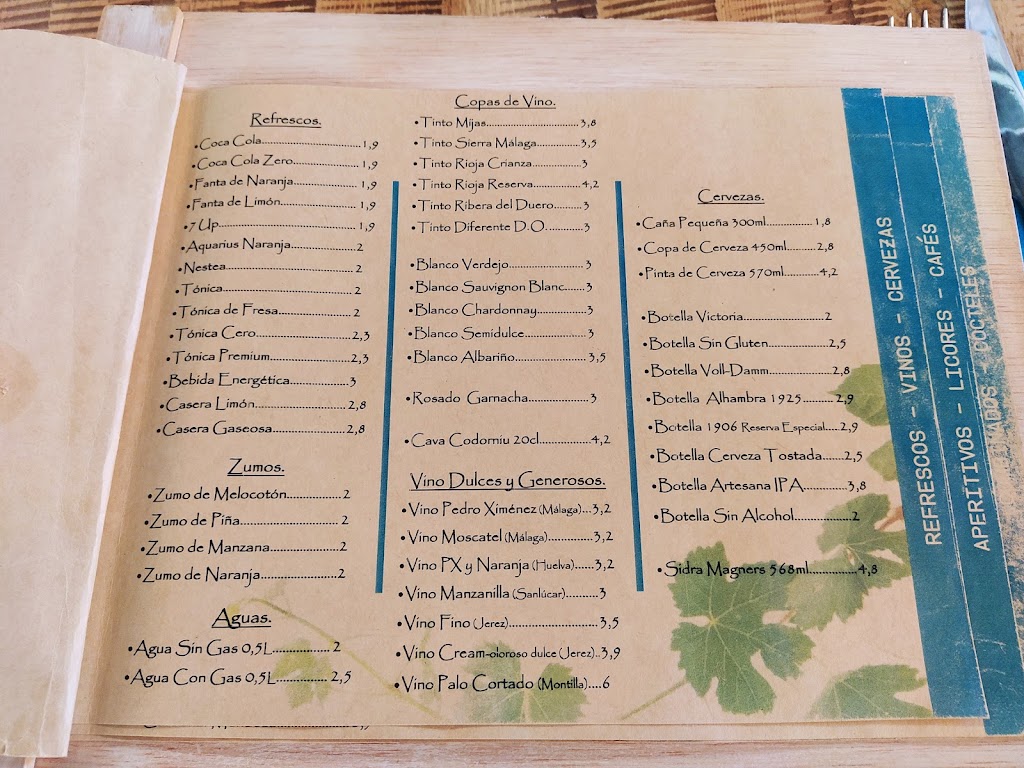 Refrescos.
•Coca Cola..............................1,9
•Coca Cola Zero.....................1,9
•Fanta de Naranja................... 1,9
•Fanta de Limón...................... 1,9
•7 Up.........................................1,9
•Aquarius Naranja...................2
•Nestea......................................2
•Tónica......................................2
•Tónica de Fresa......................2
•Tónica Cero............................2,3
•Tónica Premium.......................2,3
•Bebida Energética.................3
•Casera Limón..........................2,8
•Casera Gaseosa.....................2,8
Zumos.
•Zumo de Melocotón.................2
•Zumo de Piña..........................2
•Zumo de Manzana...................2
•Zumo de Naranja.....................2
Aguas.
•Agua Sin Gas 0,5L................. 2
•Agua Con Gas 0,5L............... 2,5
Copas de Vino.
•Tinto Mijas...............................3,8
•Tinto Sierra Málaga..............3,5
•Tinto Rioja Crianza................3
•Tinto Rioja Reserva................4,2
•Tinto Ribera del Duero.........3
•Tinto Diferente D.O.............3
•Blanco Verdejo......................3
•Blanco Sauvignon Blanc.......3
•Blanco Chardonnay...............3
•Blanco Semidulce...................3
•Blanco Albariño.....................3,5
•Rosado Garnacha..................3
•Cava Codorniu 20cl..............4,2
Vino Dulces y Generosos.
•Vino Pedro Ximénez (Málaga)...3,2
•Vino Moscatel (Málaga)............3,2
•Vino PX y Naranja (Huelva)......3,2
•Vino Manzanilla (Sanlúcar)..........3
•Vino Fino (Jerez)........................3,5
•Vino Cream-oloroso dulce (Jerez)..3,9
•Vino Palo Cortado (Montilla)....6
Cervezas.
•Caña Pequeña 300ml............1,8
•Copa de Cerveza 450ml.........2,8
•Pinta de Cerveza 570ml...........4,2
•Botella Victoria.......................2
•Botella Sin Gluten..................2,5
•Botella Voll-Damm...................2,8
•Botella Alhambra 1925.........2,9
•Botella 1906 Reserva Especial.....2,9
•Botella Cerveza Tostada.......2,5
•Botella Artesana IPA...........3,8
•Botella Sin Alcohol...............2
•Sidra Magners 568ml...............4,8
REFRESCOS - VINOS - CERVEZAS
APERITIVOS - LICORES - CAFÉS
COCTELES